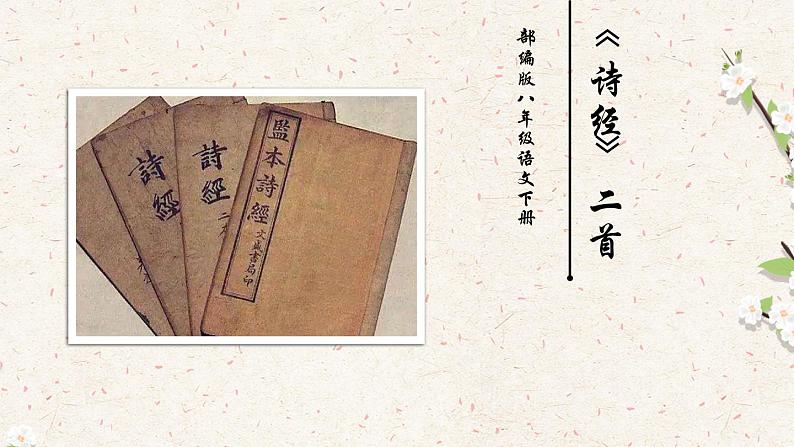 《诗经》二首
部编版八年级语文下册
監本詩經
文盛書局印
詩經
二本
詩經